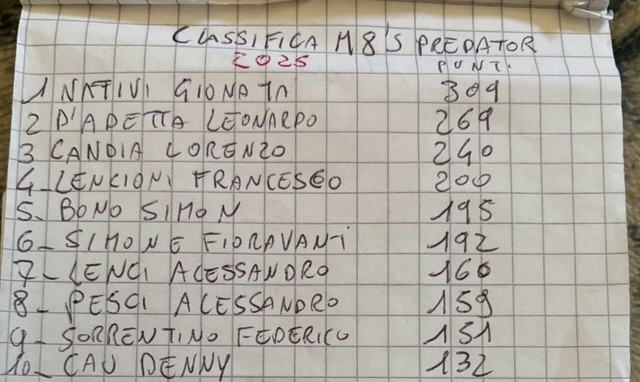 CLASSIFICA M8'S PREDATOR
2025 PUNTI.
1 NATIVI GIONATA 309
2 D'ADETTA LEONARDO 269
3 CANDIA LORENZO 240
4_LENCIONI FRANCESCO 200
5_ BONO SIMON 195
6_ SIMONE FIORAVANTI 192
7_ LENCI ALESSANDRO 160
8_ PESCI ALESSANDRO 159
9_ SORRENTINO FEDERICO 151
10_ CAU DENNY 132